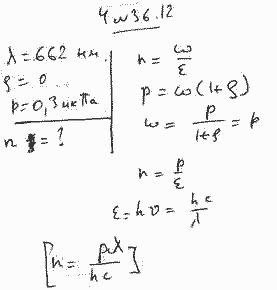 Ч w 36.12
λ = 662 нм.
ρ = 0
p = 0,3 мкПа
n = ?
n = ω/ε
p = ω(1+ρ)
ω = p/(1+ρ) = p
n = p/ε
ε = hν = hc/λ
[n = pλ/hc]